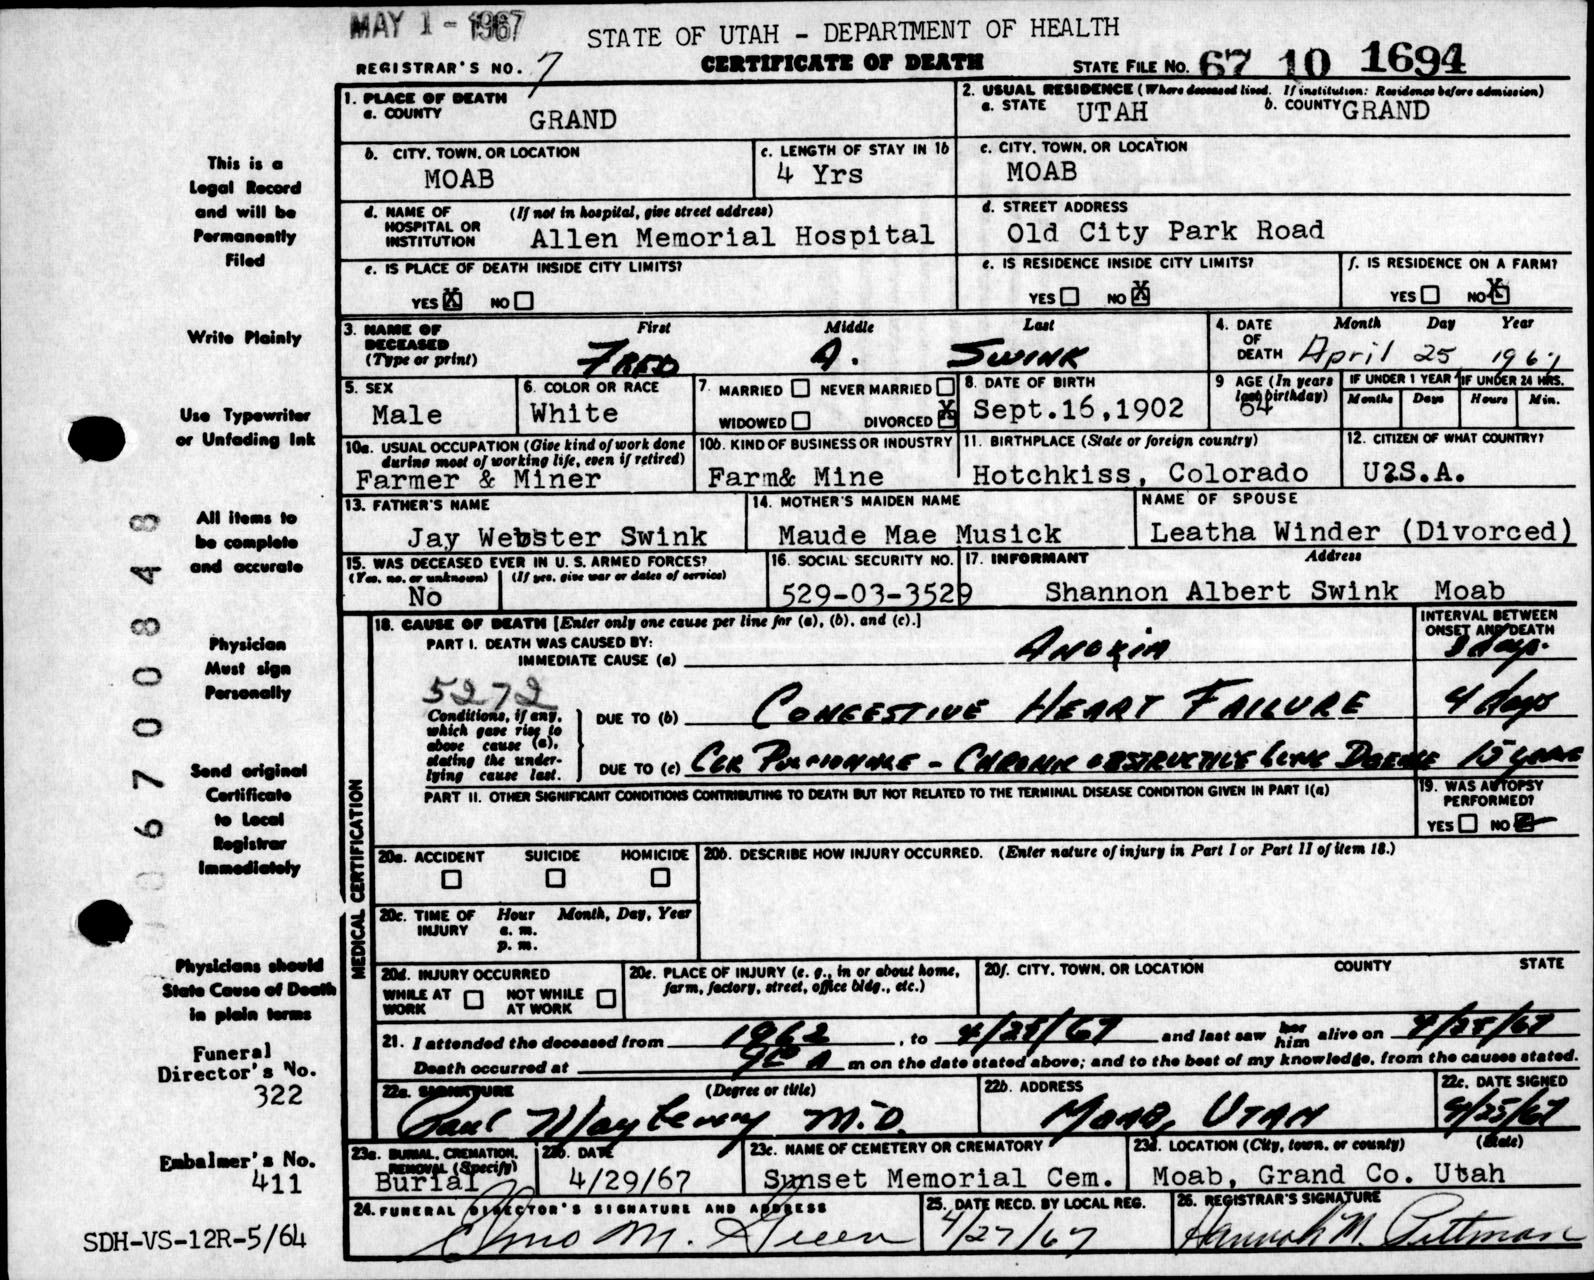 MAY 1 - 1967
STATE OF UTAH - DEPARTMENT OF HEALTH
REGISTRAR'S NO. 7
CERTIFICATE OF DEATH
STATE FILE NO. 67 10 1694
This is a
Legal Record
and will be
Permanently
Filed
Write Plainly
Use Typewriter
or Unfading Ink
All items to
be complete
and accurate
Physician
Must sign
Personally
Send original
Certificate
to Local
Registrar
Immediately
Physicians should
State Cause of Death
in plain terms
Funeral
Director's No.
322
Embalmer's No.
411
SDH-VS-12R-5/64
0670084 8
1. PLACE OF DEATH
a. COUNTY GRAND
2. USUAL RESIDENCE (Where deceased lived. If institution: Residence before admission)
a. STATE UTAH b. COUNTY GRAND
b. CITY, TOWN, OR LOCATION
MOAB
c. LENGTH OF STAY IN 1b
4 Yrs
c. CITY, TOWN, OR LOCATION
MOAB
d. NAME OF HOSPITAL OR INSTITUTION (If not in hospital, give street address)
Allen Memorial Hospital
d. STREET ADDRESS
Old City Park Road
e. IS PLACE OF DEATH INSIDE CITY LIMITS?
YES X NO
e. IS RESIDENCE INSIDE CITY LIMITS?
YES NO X
f. IS RESIDENCE ON A FARM?
YES NO X
3. NAME OF DECEASED (Type or print)
First Middle Last
FRED A. SWINK
4. DATE OF DEATH
Month Day Year
April 25 1967
5. SEX
Male
6. COLOR OR RACE
White
7. MARRIED NEVER MARRIED
WIDOWED DIVORCED X
8. DATE OF BIRTH
Sept.16,1902
9 AGE (In years last birthday)
64
IF UNDER 1 YEAR IF UNDER 24 HRS.
Months Days Hours Min.
10a. USUAL OCCUPATION (Give kind of work done during most of working life, even if retired)
Farmer & Miner
10b. KIND OF BUSINESS OR INDUSTRY
Farm& Mine
11. BIRTHPLACE (State or foreign country)
Hotchkiss, Colorado
12. CITIZEN OF WHAT COUNTRY?
U.S.A.
13. FATHER'S NAME
Jay Webster Swink
14. MOTHER'S MAIDEN NAME
Maude Mae Musick
NAME OF SPOUSE
Leatha Winder (Divorced)
15. WAS DECEASED EVER IN U. S. ARMED FORCES?
(Yes, no, or unknown) (If yes, give war or dates of service)
No
16. SOCIAL SECURITY NO.
529-03-3529
17. INFORMANT Address
Shannon Albert Swink Moab
MEDICAL CERTIFICATION
18. CAUSE OF DEATH [Enter only one cause per line for (a), (b), and (c).]
INTERVAL BETWEEN ONSET AND DEATH
PART I. DEATH WAS CAUSED BY:
IMMEDIATE CAUSE (a) ANOXIA
5272
Conditions, if any, which gave rise to above cause (a), stating the underlying cause last.
DUE TO (b) CONGESTIVE HEART FAILURE 4 days
DUE TO (c) COR PULMONALE - CHRONIC OBSTRUCTIVE LUNG DISEASE 15 years
PART II. OTHER SIGNIFICANT CONDITIONS CONTRIBUTING TO DEATH BUT NOT RELATED TO THE TERMINAL DISEASE CONDITION GIVEN IN PART I(a)
19. WAS AUTOPSY PERFORMED?
YES NO
20a. ACCIDENT SUICIDE HOMICIDE
20b. DESCRIBE HOW INJURY OCCURRED. (Enter nature of injury in Part I or Part II of item 18.)
20c. TIME OF INJURY Hour Month, Day, Year
a. m.
p. m.
20d. INJURY OCCURRED
WHILE AT WORK NOT WHILE AT WORK
20e. PLACE OF INJURY (e. g., in or about home, farm, factory, street, office bldg., etc.)
20f. CITY, TOWN, OR LOCATION COUNTY STATE
21. I attended the deceased from 1962, to 4/25/67 and last saw her him alive on 4/25/67
Death occurred at 9 A m on the date stated above; and to the best of my knowledge, from the causes stated.
22a. SIGNATURE (Degree or title)
Paul Mayberry M.D.
22b. ADDRESS
MOAB, UTAH
22c. DATE SIGNED
4/25/67
23a. BURIAL, CREMATION, REMOVAL (Specify)
Burial
23b. DATE
4/29/67
23c. NAME OF CEMETERY OR CREMATORY
Sunset Memorial Cem.
23d. LOCATION (City, town, or county) (State)
Moab, Grand Co. Utah
24. FUNERAL DIRECTOR'S SIGNATURE AND ADDRESS
Elmo M. Green
25. DATE RECD. BY LOCAL REG.
4/27/67
26. REGISTRAR'S SIGNATURE
Hannah M. Pittman